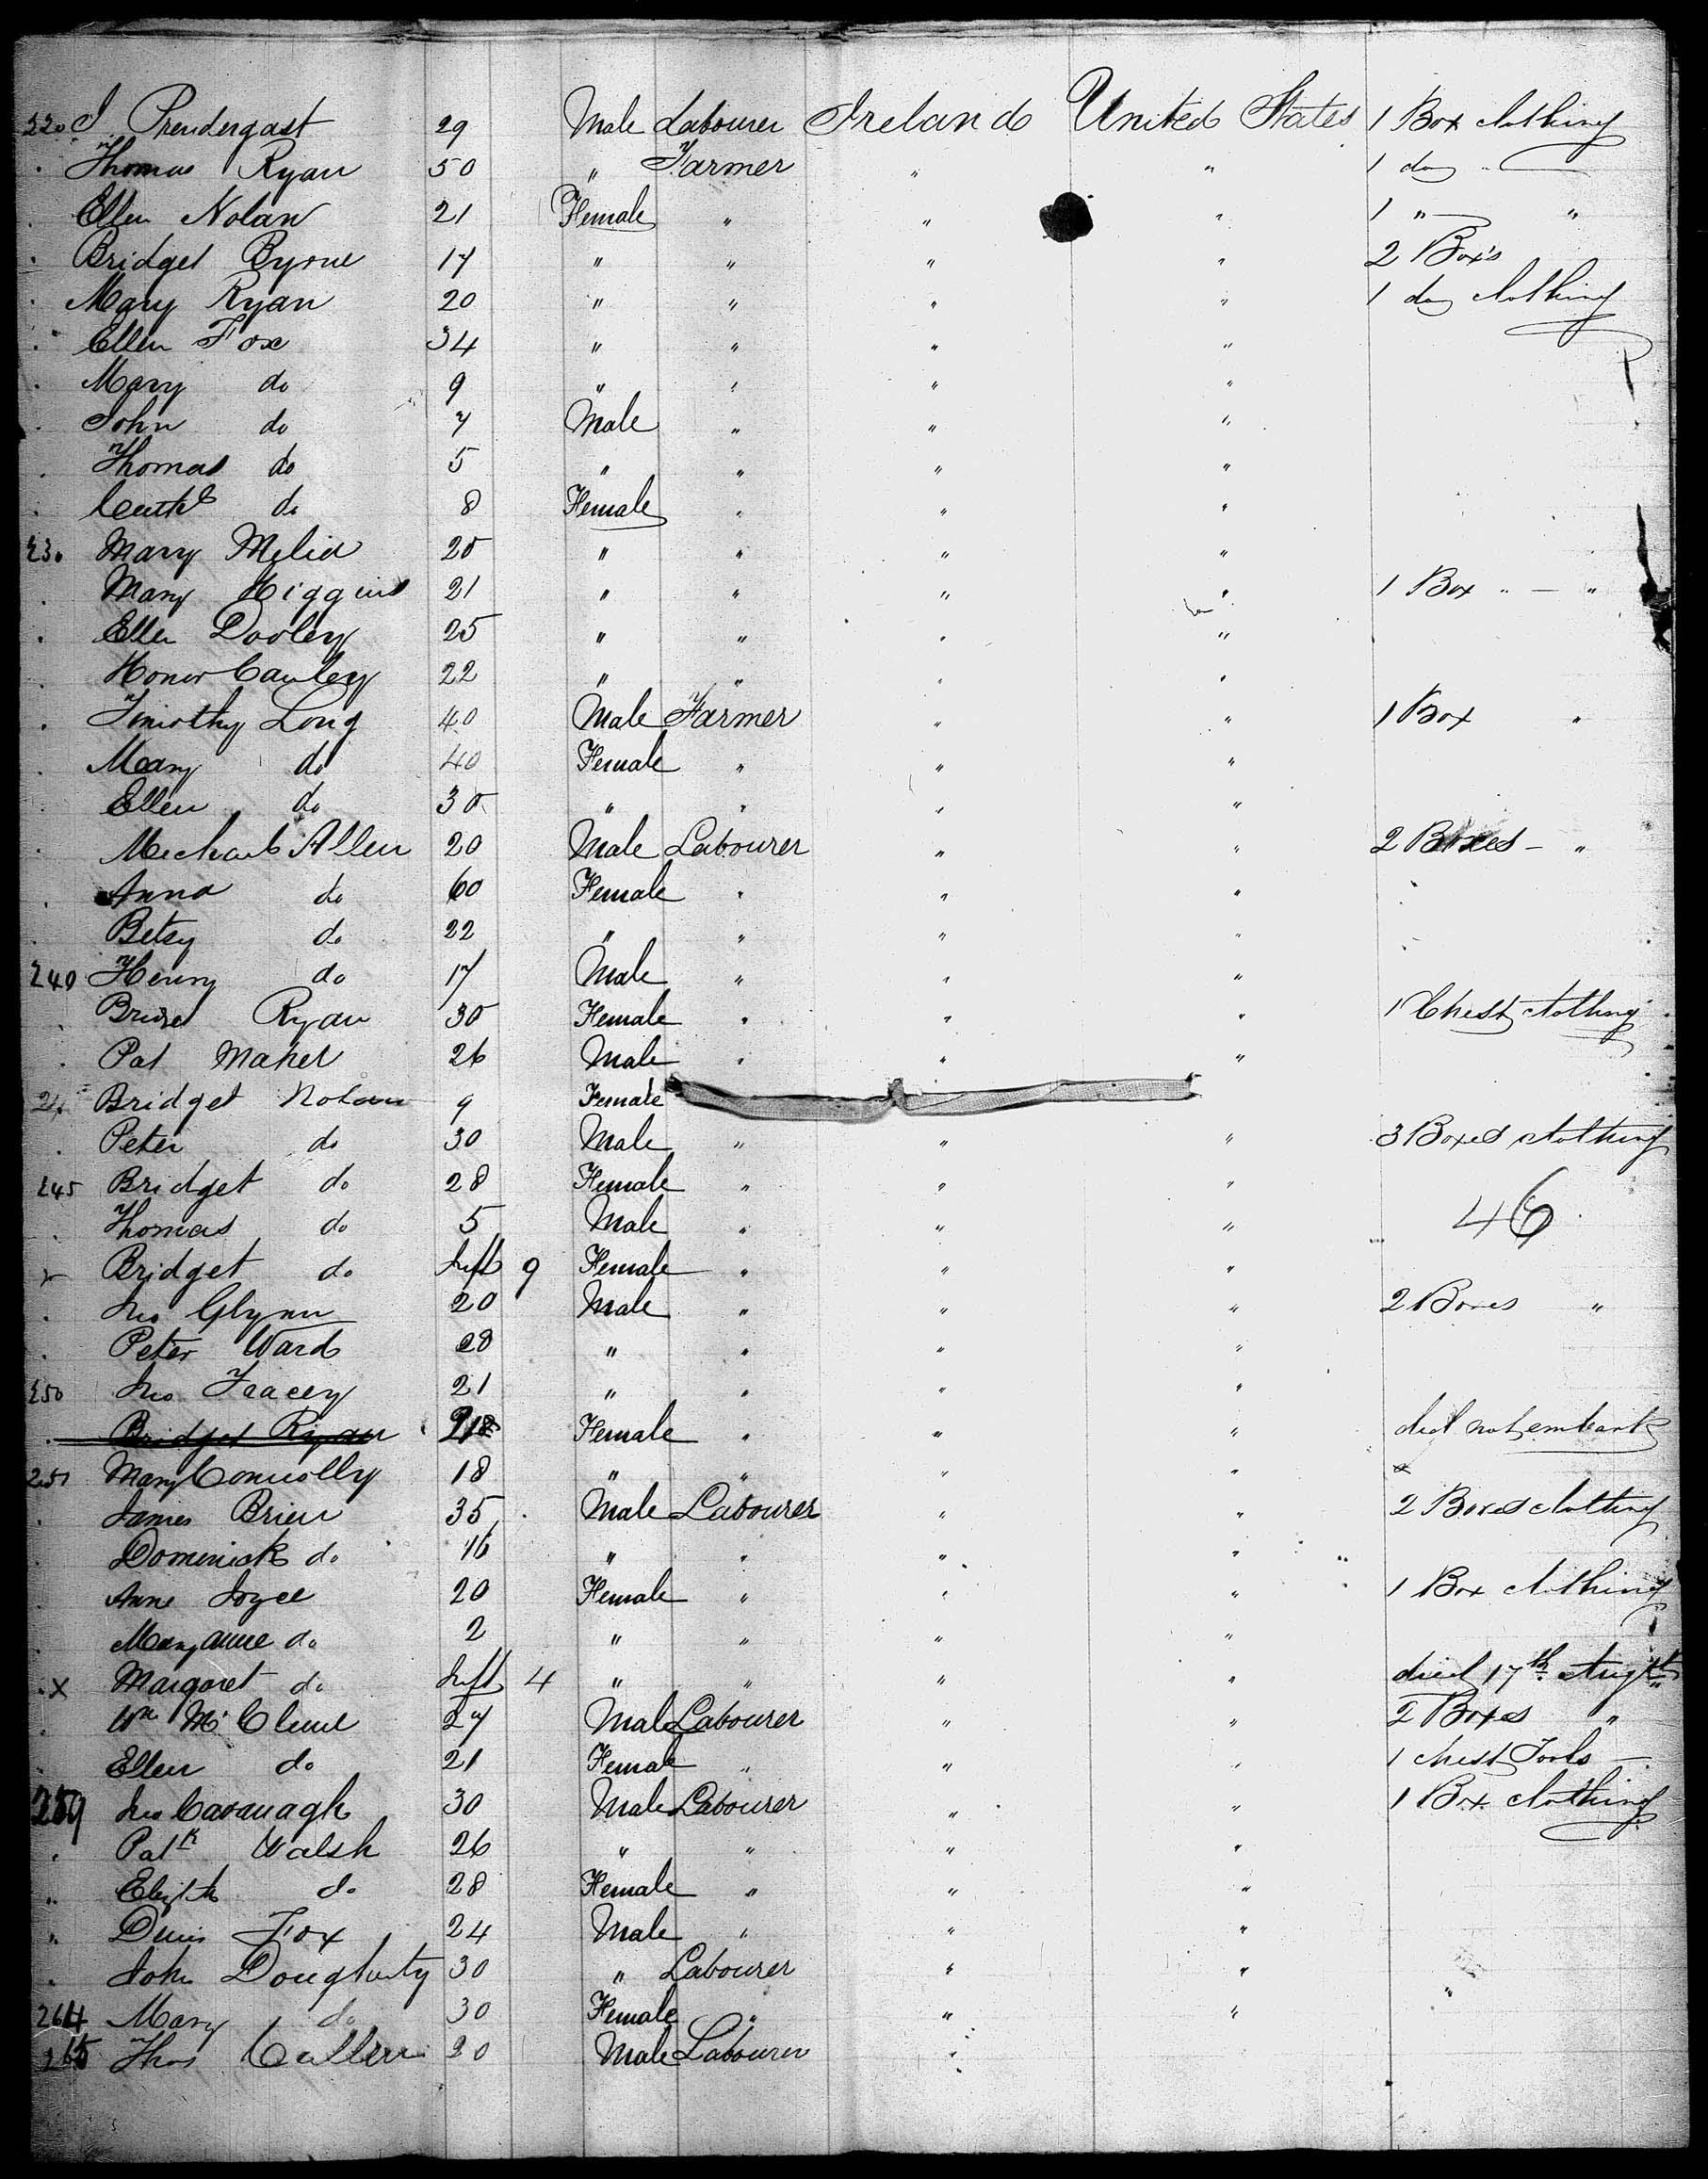 220 J Prendergast 29 Male Labourer Ireland United States 1 Box clothing
Thomas Ryan 50 " Farmer " " 1 do "
Ellen Nolan 21 Female " " " 1 " "
Bridget Byrne 17 " " " " 2 Box's
Mary Ryan 20 " " " " 1 do clothing
Ellen Fox 34 " " " "
Mary do 9 " " " "
John do 7 Male " " "
Thomas do 5 " " " "
do 8 Female " " "
230 Mary Melia 25 " " " "
Mary Higgins 21 " " " " 1 Box " — "
Ellen Dooley 25 " " " "
Honor Cauley 22 " " " "
Timothy Long 40 Male Farmer " " 1 Box "
Mary do 40 Female " " "
Ellen do 30 " " " "
Michael Allen 20 Male Labourer " " 2 Boxes — "
Anna do 60 Female " " "
Betsy do 22 " " " "
240 Henry do 17 Male " " "
Ryan 30 Female " " " 1 Chest clothing
Pat Maher 26 Male " " "
Bridget Nolan 9 Female
Peter do 30 Male " " " 3 Boxes clothing
245 Bridget do 28 Female " " "
Thomas do 5 Male " " " 46
Bridget do Inft 9 Female " " "
Jno Glynn 20 Male " " " 2 Boxes "
Peter Ward 28 " " " "
250 Jno Tracey 21 " " " "
Bridget Ryan Female " " " did not embark
251 Mary Connolly 18 " " " "
James Brien 35 Male Labourer " " 2 Boxes clothing
Dominick do 16 " " " "
Anne Joyce 20 Female " " " 1 Box clothing
Maryanne do 2 " " " "
x Margaret do Inft 4 " " " " died 17th Augt
Wm Mc 27 Male Labourer " " 2 Boxes "
Ellen do 21 Female " " " 1 chest Tools —
259 Jno Cavanagh 30 Male Labourer " " 1 Box clothing
Patk Walsh 26 " " " "
Elizth do 28 Female " " "
Denis Fox 24 Male " " "
John Dougherty 30 " Labourer " "
264 Mary do 30 Female " " "
265 Thos Cullen 20 Male Labourer "